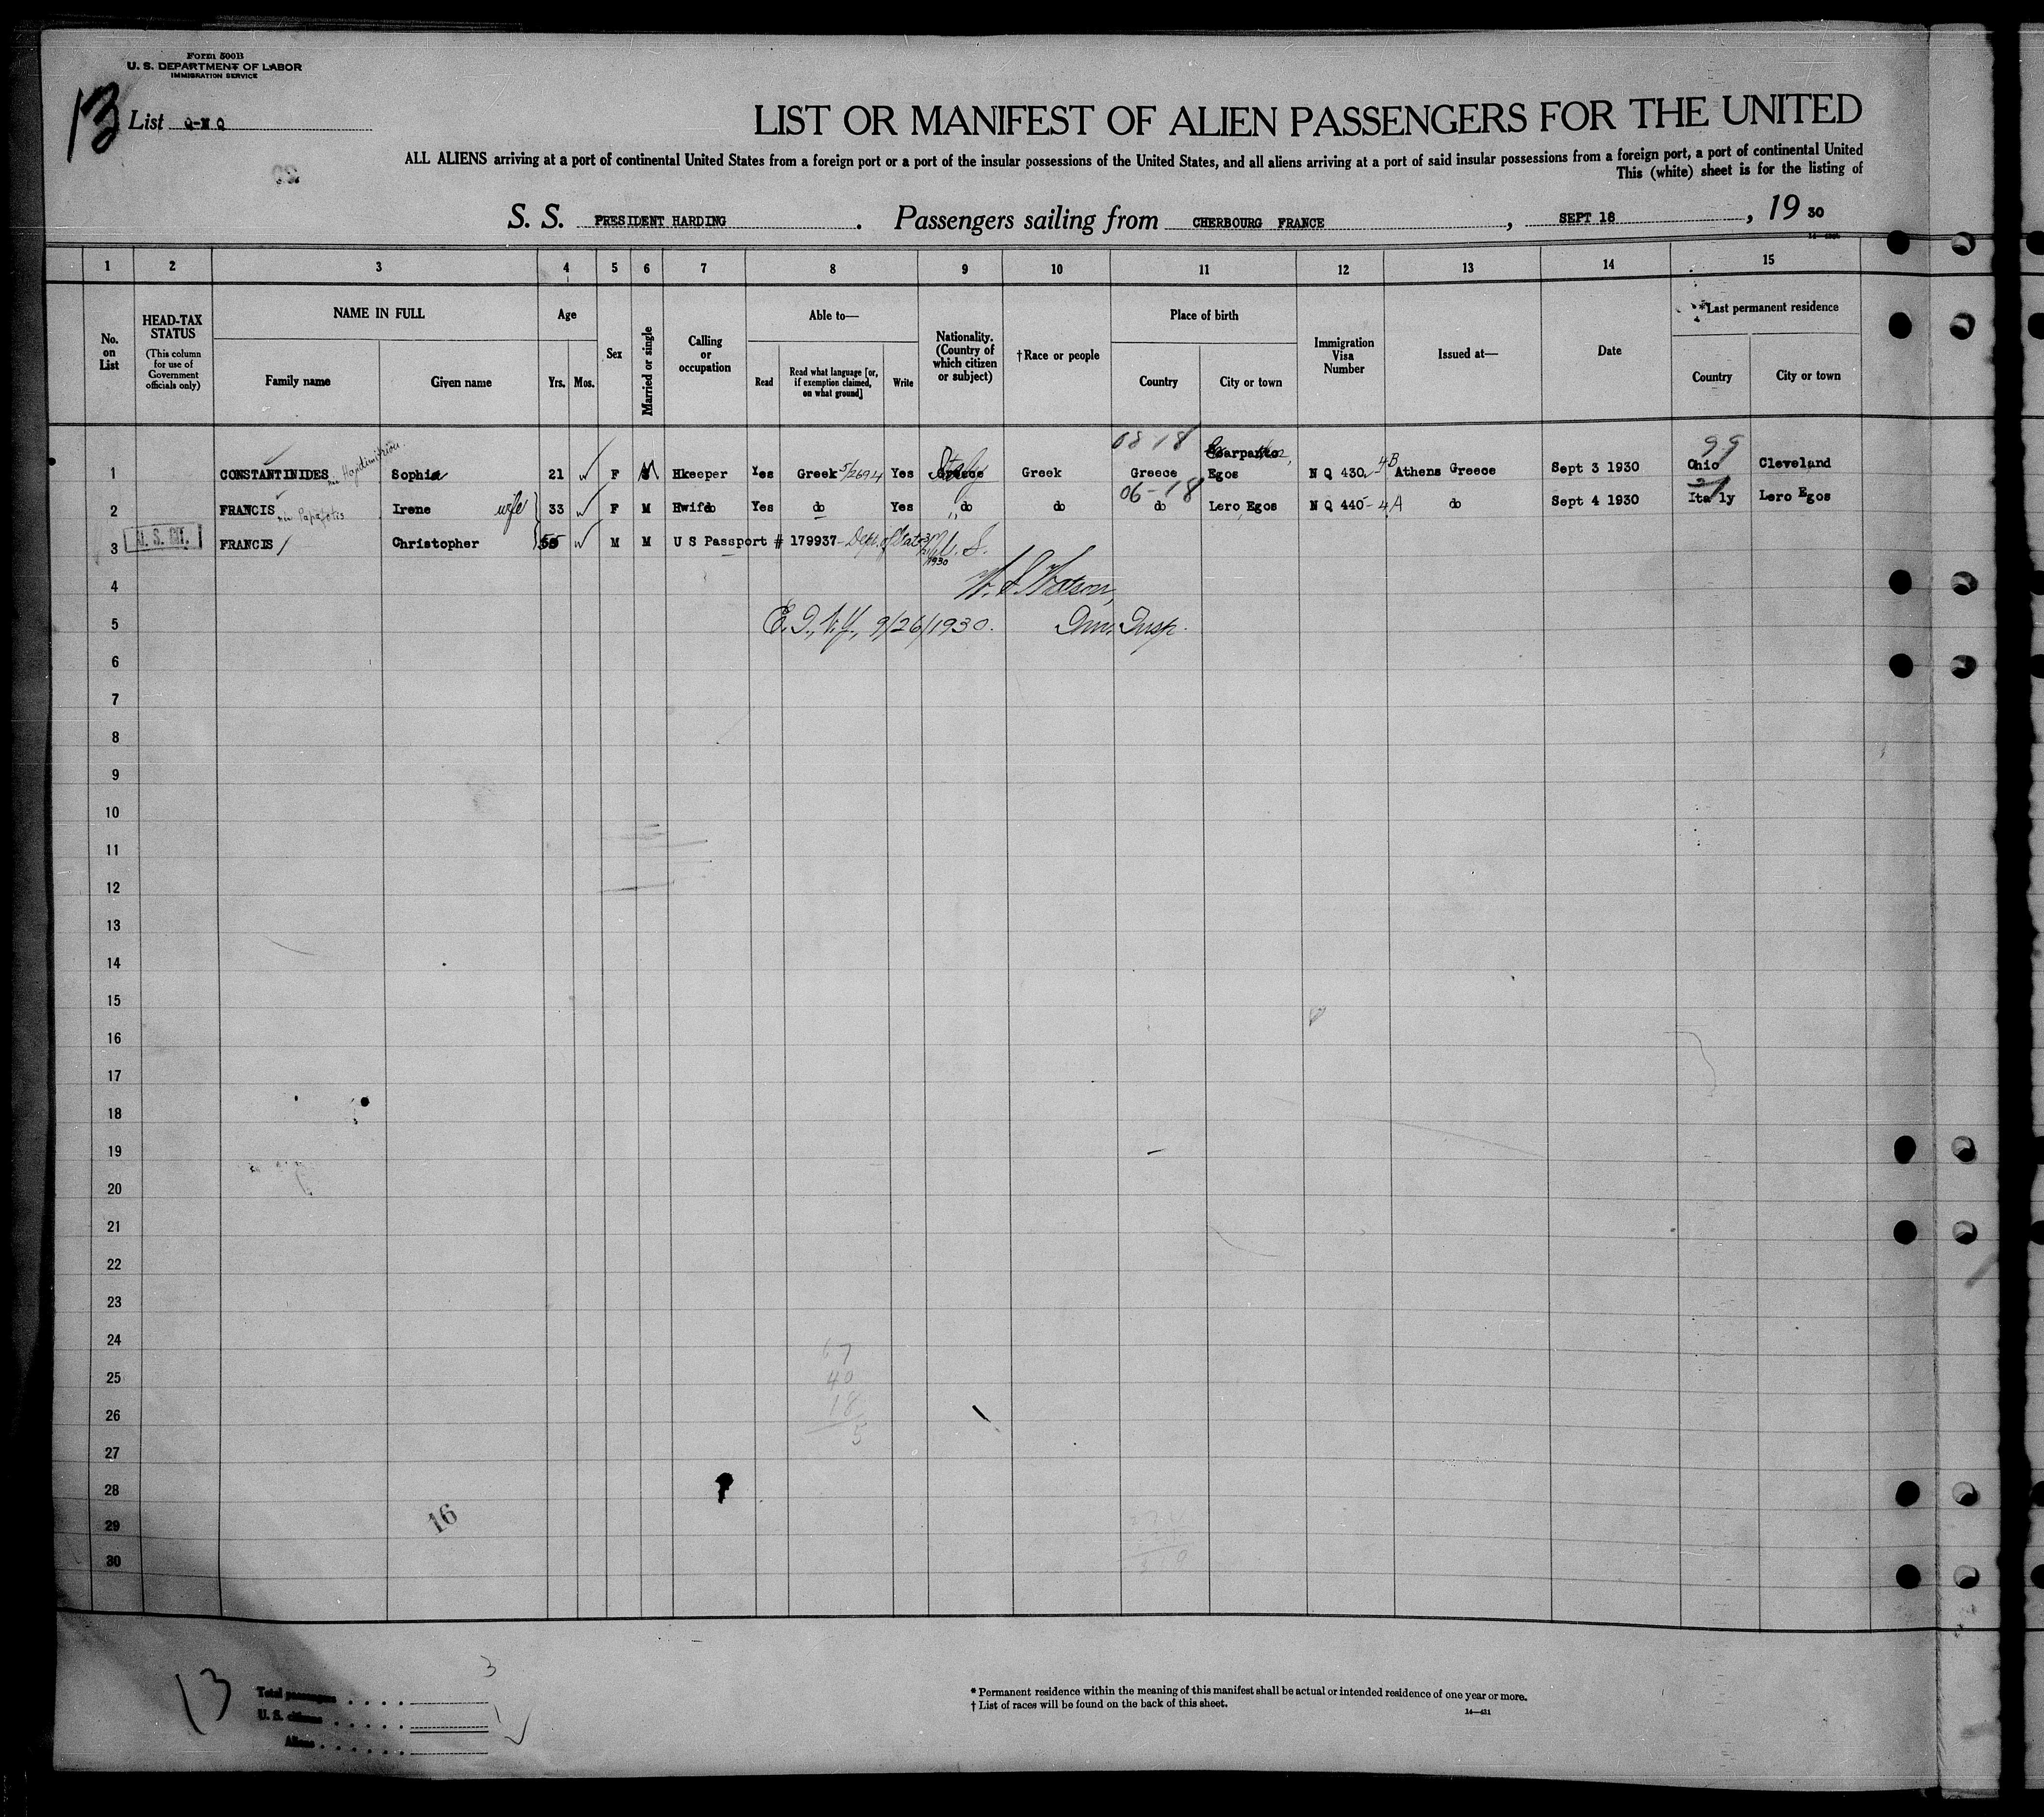 Form 500B
U. S. DEPARTMENT OF LABOR
IMMIGRATION SERVICE
13
List Q-N Q
LIST OR MANIFEST OF ALIEN PASSENGERS FOR THE UNITED
ALL ALIENS arriving at a port of continental United States from a foreign port or a port of the insular possessions of the United States, and all aliens arriving at a port of said insular possessions from a foreign port, a port of continental United
This (white) sheet is for the listing of
S. S. PRESIDENT HARDING . Passengers sailing from CHERBOURG FRANCE , SEPT 18 , 19 30
1 2 3 4 5 6 7 8 9 10 11 12 13 14 15
No. on List
HEAD-TAX STATUS (This column for use of Government officials only)
NAME IN FULL
Family name
Given name
Age
Yrs. Mos.
Sex
Married or single
Calling or occupation
Able to—
Read
Read what language [or, if exemption claimed, on what ground]
Write
Nationality. (Country of which citizen or subject)
†Race or people
Place of birth
Country
City or town
Immigration Visa Number
Issued at—
Date
*Last permanent residence
Country
City or town
08 18 99
1 CONSTANTINIDES Sophia 21 F M Hkeeper Yes Greek 5/2694 Yes Greece Italy Greek Greece Scarpanto, Egos N Q 430 4B Athens Greece Sept 3 1930 Ohio Cleveland
06-18 21
2 FRANCIS Irene wife 33 F M Hwife Yes do Yes do do do Lero Egos N Q 440-4A do Sept 4 1930 Italy Lero Egos
U. S. CIT.
3 FRANCIS Christopher 55 M M U S Passport # 179937 - Dept. of State 1930 U. S.
4 W. S. Watson,
5 E. I., N.Y., 9/26/1930. Imm. Insp.
6
7
8
9
10
11
12
13
14
15
16
17
18
19
20
21
22
23
24
25
26
27
28
29
30
67
40
18
5
16
13
Total passengers . . . . 3
U. S. citizens . . . . . 1
Aliens . . . . . .
* Permanent residence within the meaning of this manifest shall be actual or intended residence of one year or more.
† List of races will be found on the back of this sheet.
14—421